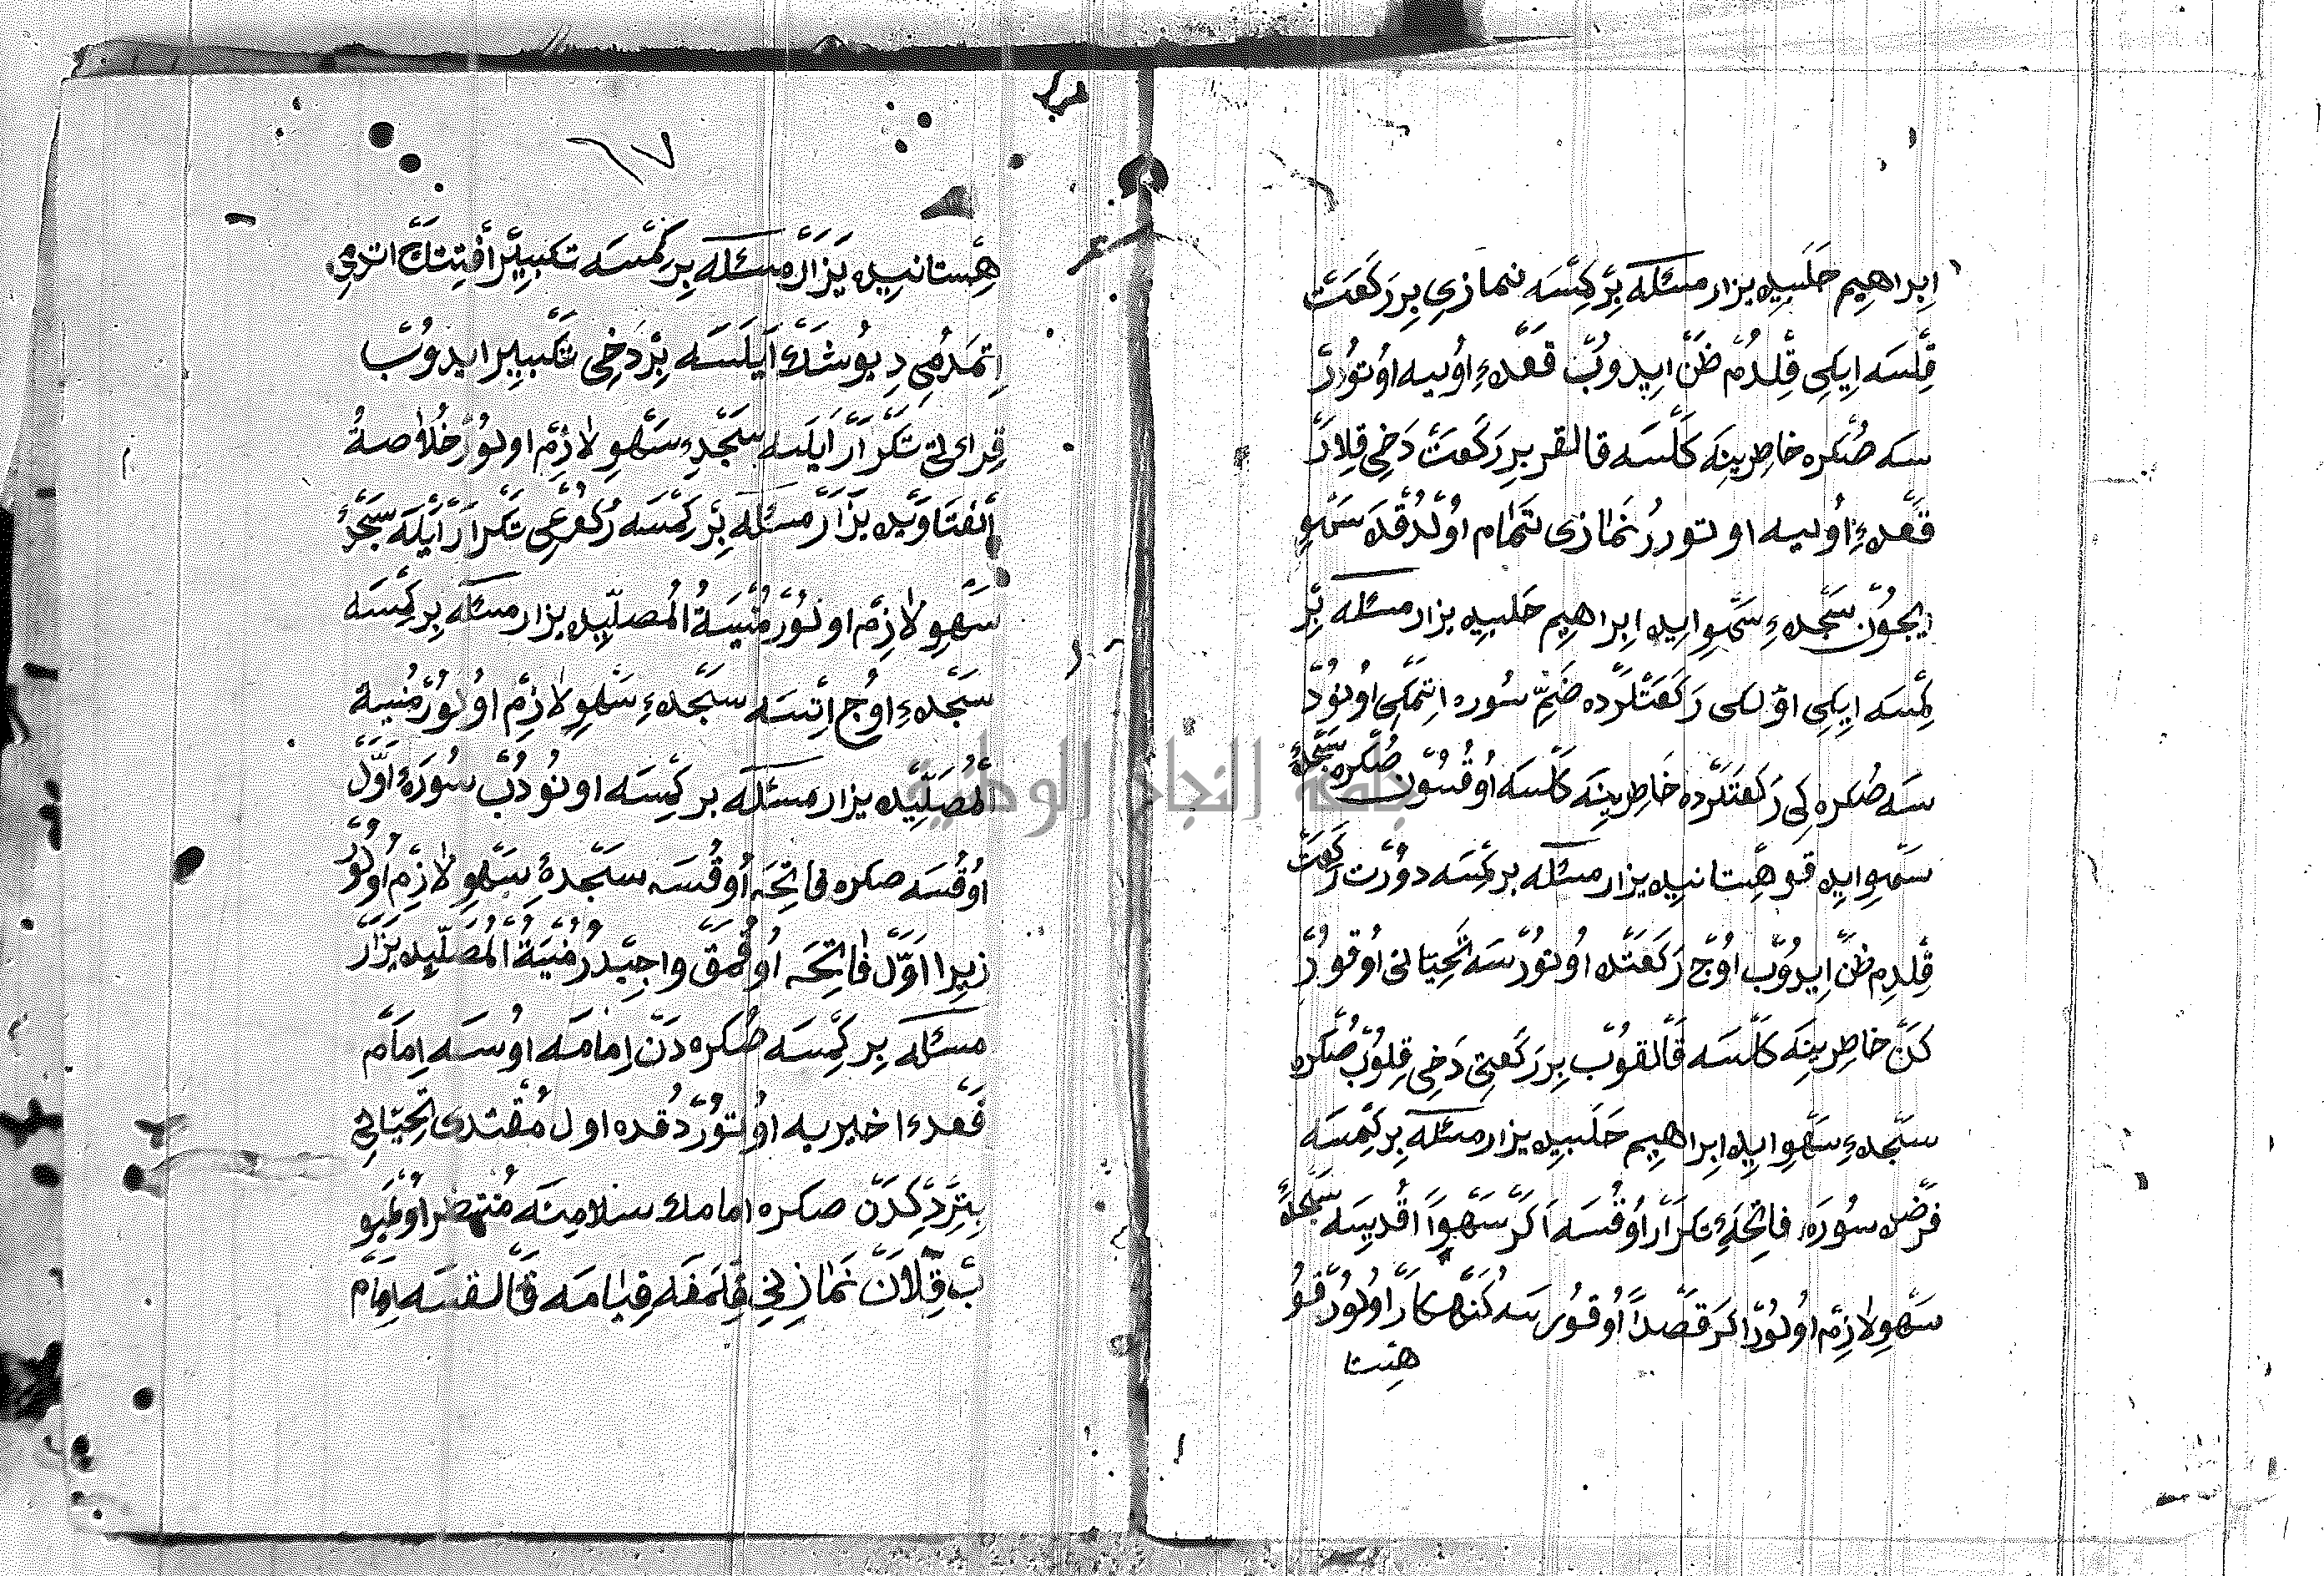 اِبراهيم حَلَبيده يزار مسئله بِرْ كِمْسَه نمازى بِر رَكَعَتْ
قِلْسَه اِيكِى قِلْدُمْ ظَنّ ايدوُبْ قَعْدهٔ اوُليه اوُتوُرُرْ
سَه صُكره خاطِرينَه كَلْسَه قالقر بِر رَكَعَتْ دَخِى قِلارْ
قَعْدهٔ اوُليه اوتورُر نَمازى تَمام اوُلْدُقْدَه سَهْوِ
ايچوُنْ سَجْدهٔ سَهْو ايده اِبراهيم حَلبيده يزار مسئله بِرْ
كِمْسَه اِيكِى اوّلكى رَكَعَتْلَرْده ضَمِّ سُوره اِتْمَكِى اوُنوُدْ
سَه صُكره كِى رَكَعَتْلَرْده خَاطِرينَه كَلْسَه اوُقُسوُن صُكره سَجْدهٔ
سَهْو ايده قوهِستانيده يزار مسئله بر كِمْسَه دوُرْت رَكَعَتْ
قِلْدِم ظَنّ اِيدوُبْ اوُچْ رَكَعَتْده اوُتوُرْسَه تَحِيّاتى اوُقوُرْ
كَنْ خاطِرينَه كَلْسَه قَالقوُبْ بِر رَكَعَتِى دَخِى قِلوُبْ صُكره
سَجْدهٔ سَهْو ايده اِبراهيم حَلَبيده يزار مسئله بِر كِمْسَه
فَرْضده سوُرَه فاتِحَهٔ تكرَارْ اوُقُسَه اَكَرْ سَهْوًا اقُديسَه سَجْدهٔ
سَهْو لازِمْ اوُلوُرْ اكَر قَصْدًا اوُقوُرسَه كُنَهْكارْ اوُلوُرْ قوُ
هِستا
١٧
هِسْتانيده يَزَارْ مسئله بِر كِمْسَه تكبيرْ اَفْتِتَاحْ اتدمِى
اِتمَدُمِى دِيوُ شَكْ اَيلَسَه بِرْ دَخِى تَكْبير ايدوُبْ
قِراءتى تَكْرَارْ اَيلَيه سَجْدهٔ سَهْو لازِمْ اولوُرْ خُلاصةُ
اَلْفَتاوَيْده يَزَارْ مسئله بِرْ كِمْسَه رُكُعْى تَكْرارْ اَيْلَه سَجْدهٔ
سَهْو لازِمْ اولوُرْ مُنْيَةُ الْمُصلّيده يزار مسئله بِر كِمْسَه
سَجْدهٔ اوُچ اِتْسَه سَجْدهٔ سَهْو لازِمْ اوُلوُرْ مُنية
اَلْمُصَلّيْده يزار مسئله بر كِمْسَه اونوُدُبْ سوُرَهٔ اَوَّلْ
اوُقُسَه صكره فاتِحَه اوُقُسَه سَجْدهٔ سَهْو لازِمْ اوُلوُرْ
زيرا اَوَّلْ فاتِحَه اوُقُمَقْ واجِبْدُرْ مُنْيَةُ اَلْمُصَلّيده يَزَارْ
مسئله بِر كِمْسَه صُكره دَنْ اِمامَه اوُيسَه اِمامْ
قَعْدهٔ اخيريه اوُتوُرْدُقده اول مُقْتدى تَحِيّاتى
بِتِرْدِكْدَنْ صكره امامك سلامِينَه مُنْتظر اوُلميو
بْ قِلانْ نَمازِنِى قِلْمَغَه قِيامَه قَالقسَه اِمامْ